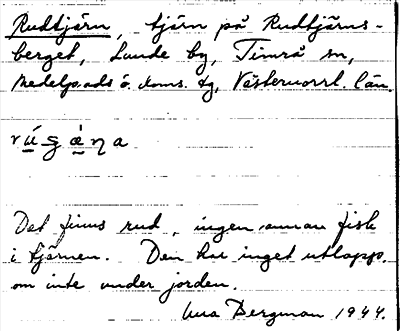 Rudtjärn, tjärn på Rudtjärns-
berget, Lunde by, Timrå sn,
Medelpads ö. doms. tg, Västernorrl. län.
Det finns rud, ingen annan fisk
i tjärnen. Den har inget utlopp,
om inte under jorden.
Bergman 1944.